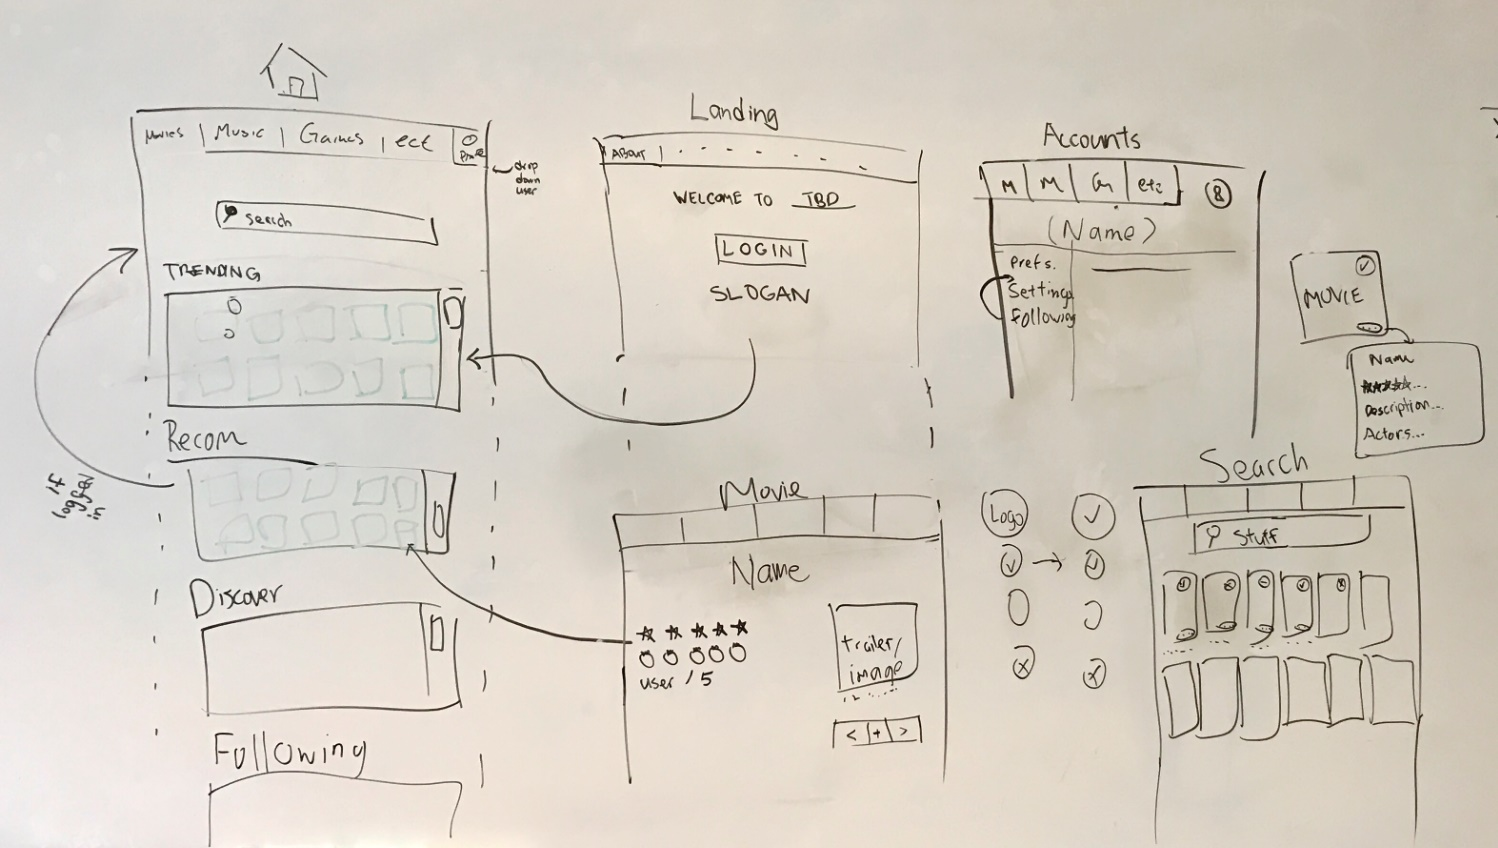 Movies | Music | Games | ect
drop
down
user
search
TRENDING
Recom
if
logged
in
Discover
Following
Landing
ABOUT
WELCOME TO TBD
LOGIN
SLOGAN
Movie
Name
user / 5
trailer/
image
< + >
Accounts
M M G etc
(Name)
Prefs.
Settings
Following
MOVIE
Name
Description...
Actors...
Logo
Search
Stuff